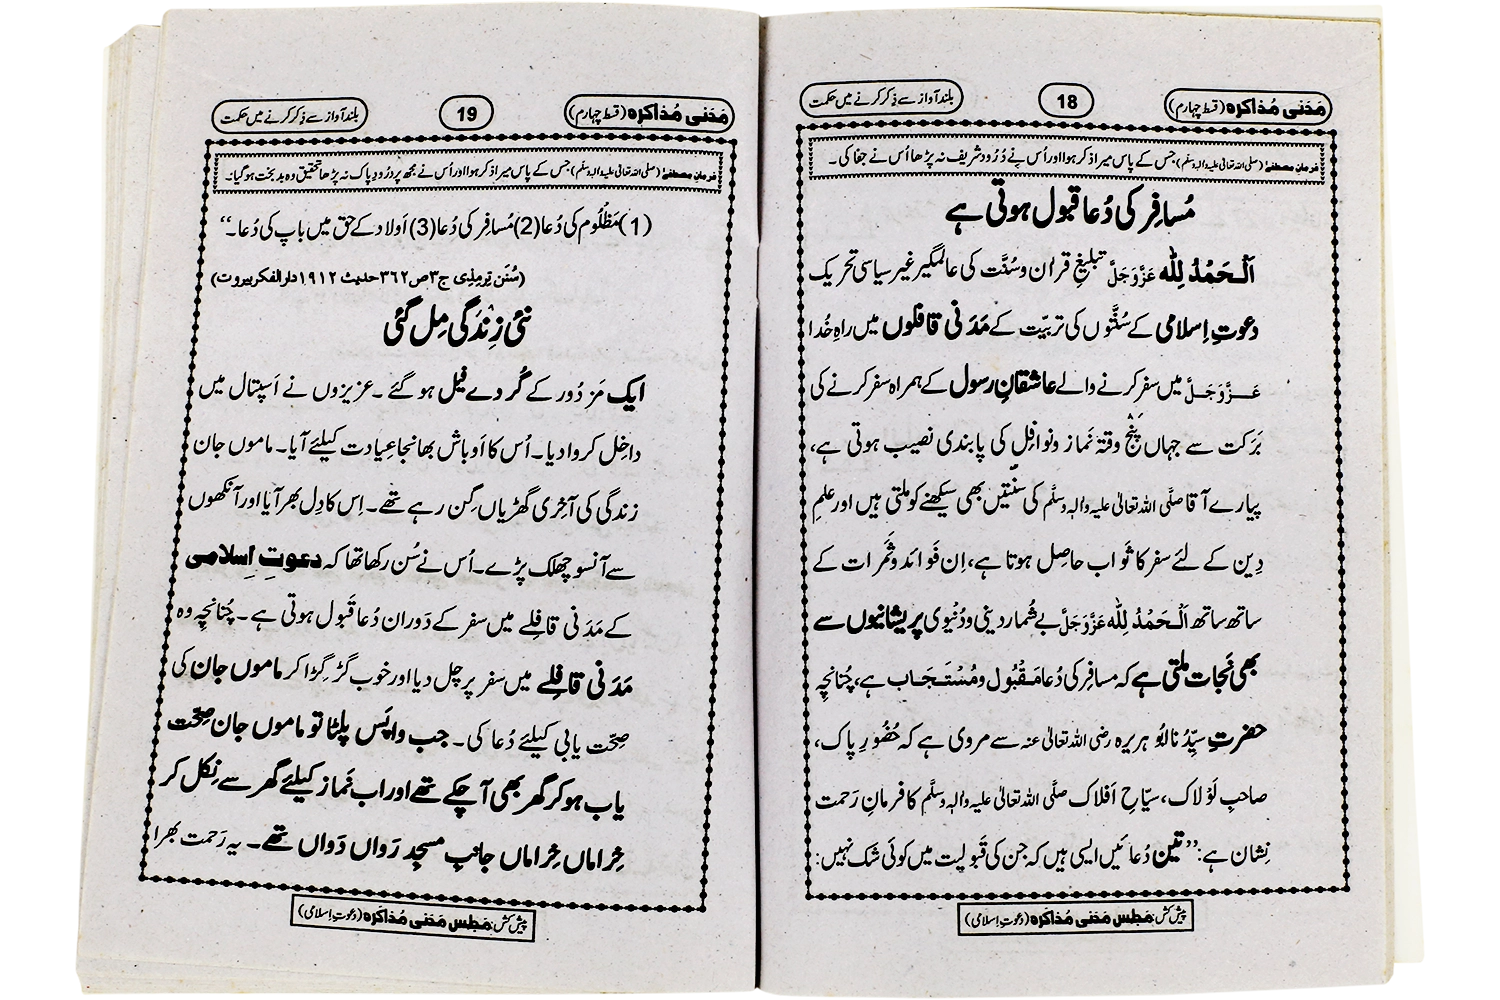 مَدَنی مُذاکرہ (قسط چہارم)
18
بلند آواز سے ذِکر کرنے میں حکمت
فرمانِ مصطفےٰ (صلی اللہ تعالیٰ علیہ والہ وسلّم) جس کے پاس میرا ذکر ہوا اور اُس نے دُرُود شریف نہ پڑھا اُس نے جفا کی۔
مُسافِر کی دُعا قبول ہوتی ہے
اَلْحَمْدُ لِلّٰہ عَزَّوَجَلَّ تبلیغِ قرآن و سُنَّت کی عالمگیر غیر سیاسی تحریک
دعوتِ اِسلامی کے سُنَّتوں کی تربیّت کے مَدَنی قافِلوں میں راہِ خُدا
عَزَّوَجَلَّ میں سفر کرنے والے عاشقانِ رسول کے ہمراہ سفر کرنے کی
بَرَکت سے جہاں پنج وقتہ نَماز و نوافِل کی پابندی نصیب ہوتی ہے،
پیارے آقا صلَّی اللہ تعالیٰ علیہ والہٖ وسلَّم کی سنّتیں بھی سیکھنے کو ملتی ہیں اور علمِ
دِین کے لئے سفر کا ثواب حاصِل ہوتا ہے، اِن فَوائد و ثَمَرات کے
ساتھ ساتھ اَلْحَمْدُ لِلّٰہ عَزَّوَجَلَّ بے شُمار دینی و دُنْیوی پریشانیوں سے
بھی نَجات ملتی ہے کہ مسافِر کی دُعا مَقْبُول و مُسْتَجَاب ہے، چُنانچِہ
حضرتِ سیِّدُنا ابو ہریرہ رضی اللہ تعالیٰ عنہ سے مروی ہے کہ حُضُورِ پاک،
صاحبِ لَوْلاک، سیّاحِ اَفلاک صلَّی اللہ تعالیٰ علیہ والہٖ وسلَّم کا فرمانِ رَحمت
نِشان ہے: ’’تین دُعائیں ایسی ہیں کہ جن کی قَبولیت میں کوئی شک نہیں:
پیش کش: مَجلس مَدَنی مُذاکرہ (دعوتِ اسلامی)
مَدَنی مُذاکرہ (قسط چہارم)
19
بلند آواز سے ذِکر کرنے میں حکمت
فرمانِ مصطفےٰ (صلی اللہ تعالیٰ علیہ والہ وسلّم) جس کے پاس میرا ذکر ہوا اور اُس نے مجھ پر درُودِ پاک نہ پڑھا تحقیق وہ بد بخت ہو گیا۔
(1) مَظْلُوم کی دُعا (2) مُسافِر کی دُعا (3) اَولاد کے حق میں باپ کی دُعا۔‘‘
(سُنَن تِرمِذِی ج۳ ص ۳۶۲ حدیث ۱۹۱۲ دارالفکر بیروت)
نئی زِنْدَگی مِل گئی
ایک مَزدُور کے گُردے فیل ہو گئے۔ عزیزوں نے اَسپتال میں
داخِل کروا دیا۔ اُس کا اَوباش بھانجا عِیادت کیلئے آیا۔ ماموں جان
زندگی کی آخِری گھڑیاں گِن رہے تھے۔ اِس کا دِل بھر آیا اور آنکھوں
سے آنسو چھلک پڑے۔ اُس نے سُن رکھا تھا کہ دعوتِ اِسلامی
کے مَدَنی قافِلے میں سفر کے دَوران دُعا قَبول ہوتی ہے۔ چُنانچِہ وہ
مَدَنی قافِلے میں سفر پر چل دیا اور خوب گڑ گِڑا کر ماموں جان کی
صِحّت یابی کیلئے دُعا کی۔ جب واپَس پلٹا تو ماموں جان صِحّت
یاب ہو کر گھر بھی آ چکے تھے اور اب نَماز کیلئے گھر سے نِکل کر
خِراماں خِراماں جانِبِ مسجِد رَواں دَواں تھے۔ یہ رَحمت بھرا
پیش کش: مَجلس مَدَنی مُذاکرہ (دعوتِ اسلامی)